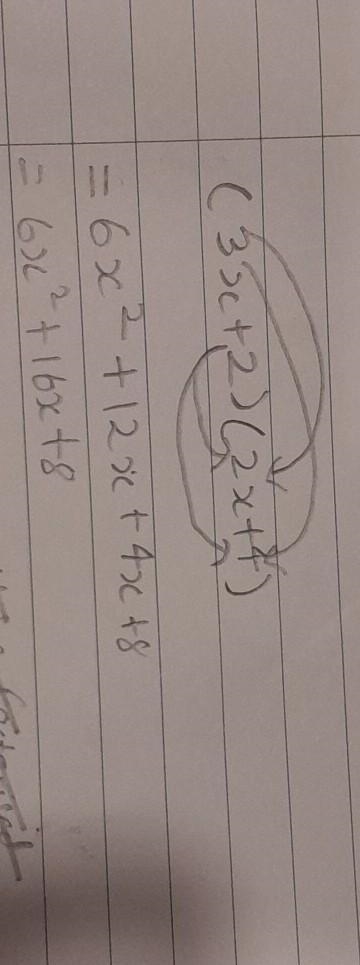 (3x+2)(2x+4)
= 6x² + 12x + 4x + 8
= 6x² + 16x + 8